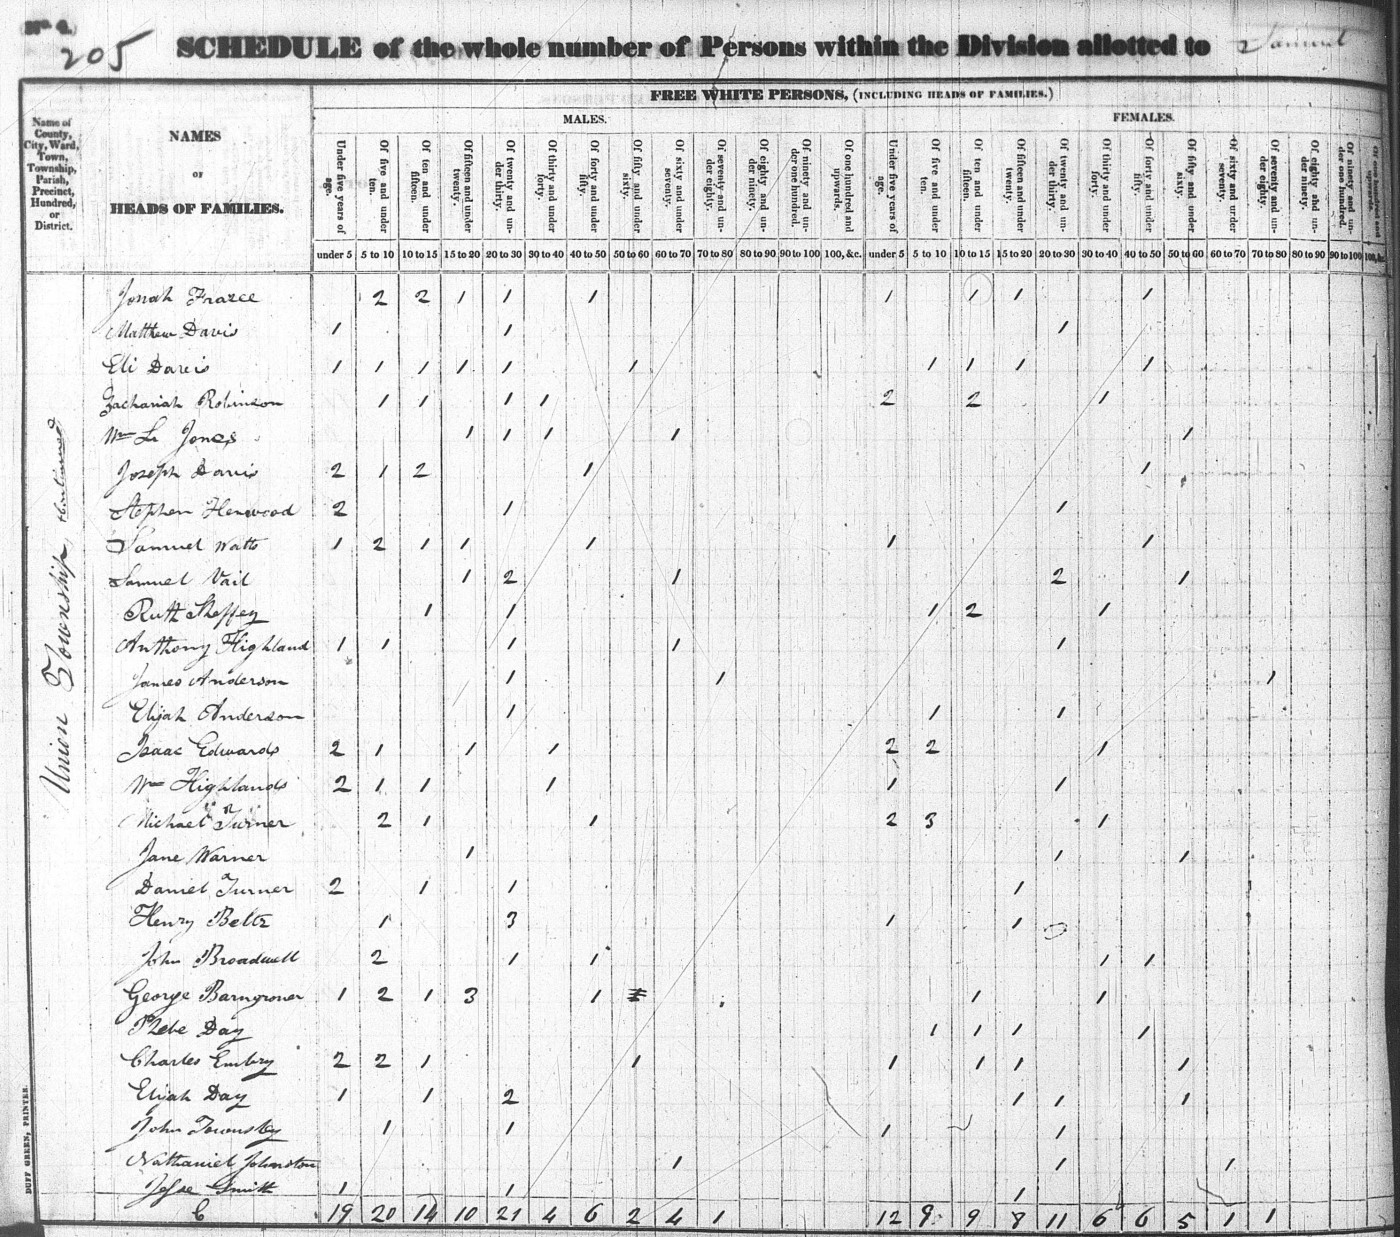 No. 4.
205 SCHEDULE of the whole number of Persons within the Division allotted to Samuel
Name of County, City, Ward, Town, Township, Parish, Precinct, Hundred, or District.
NAMES
OF
HEADS OF FAMILIES.
FREE WHITE PERSONS, (INCLUDING HEADS OF FAMILIES.)
MALES. FEMALES.
Under five years of age. Of five and under ten. Of ten and under fifteen. Of fifteen and under twenty. Of twenty and under thirty. Of thirty and under forty. Of forty and under fifty. Of fifty and under sixty. Of sixty and under seventy. Of seventy and under eighty. Of eighty and under ninety. Of ninety and under one hundred. Of one hundred and upwards. Under five years of age. Of five and under ten. Of ten and under fifteen. Of fifteen and under twenty. Of twenty and under thirty. Of thirty and under forty. Of forty and under fifty. Of fifty and under sixty. Of sixty and under seventy. Of seventy and under eighty. Of eighty and under ninety. Of ninety and under one hundred. Of one hundred and upwards.
under 5 5 to 10 10 to 15 15 to 20 20 to 30 30 to 40 40 to 50 50 to 60 60 to 70 70 to 80 80 to 90 90 to 100 100, &c. under 5 5 to 10 10 to 15 15 to 20 20 to 30 30 to 40 40 to 50 50 to 60 60 to 70 70 to 80 80 to 90 90 to 100 100, &c.
Union Township, Continued
Jonah Frazee 2 2 1 1 1 1 1 1 1
Matthew Davis 1 1 1
Eli Davis 1 1 1 1 1 1 1 1 1 1
Zachariah Robinson 1 1 1 1 2 2 1
Wm L. Jones 1 1 1 1 1
Joseph Davis 2 1 2 1 1
Stephen Henwood 2 1 1
Samuel Watts 1 2 1 1 1 1 1
Samuel Vail 1 2 1 2 1
Ruth Sheffey 1 1 1 2 1
Anthony Highland 1 1 1 1 1
James Anderson 1 1 1
Elijah Anderson 1 1 1
Isaac Edwards 2 1 1 1 2 2 1
Wm Highlands 2 1 1 1 1 1
Michael Turner 2 1 1 2 3 1
Jane Warner 1 1 1
Daniel Turner 2 1 1 1
Henry Beltz 1 3 1 1
John Broadwell 2 1 1 1 1
George Barngrover 1 2 1 3 1 1 1
Phebe Day 1 1 1 1
Charles Embry 2 2 1 1 1 1 1 1
Elijah Day 1 1 2 1 1 1
John Townsley 1 1 1 1
Nathaniel Johnston 1 1 1
Jesse Smith 1 1 1
19 20 14 10 21 4 6 2 4 1 12 9 9 8 11 6 6 5 1 1
DUFF GREEN, PRINTER.